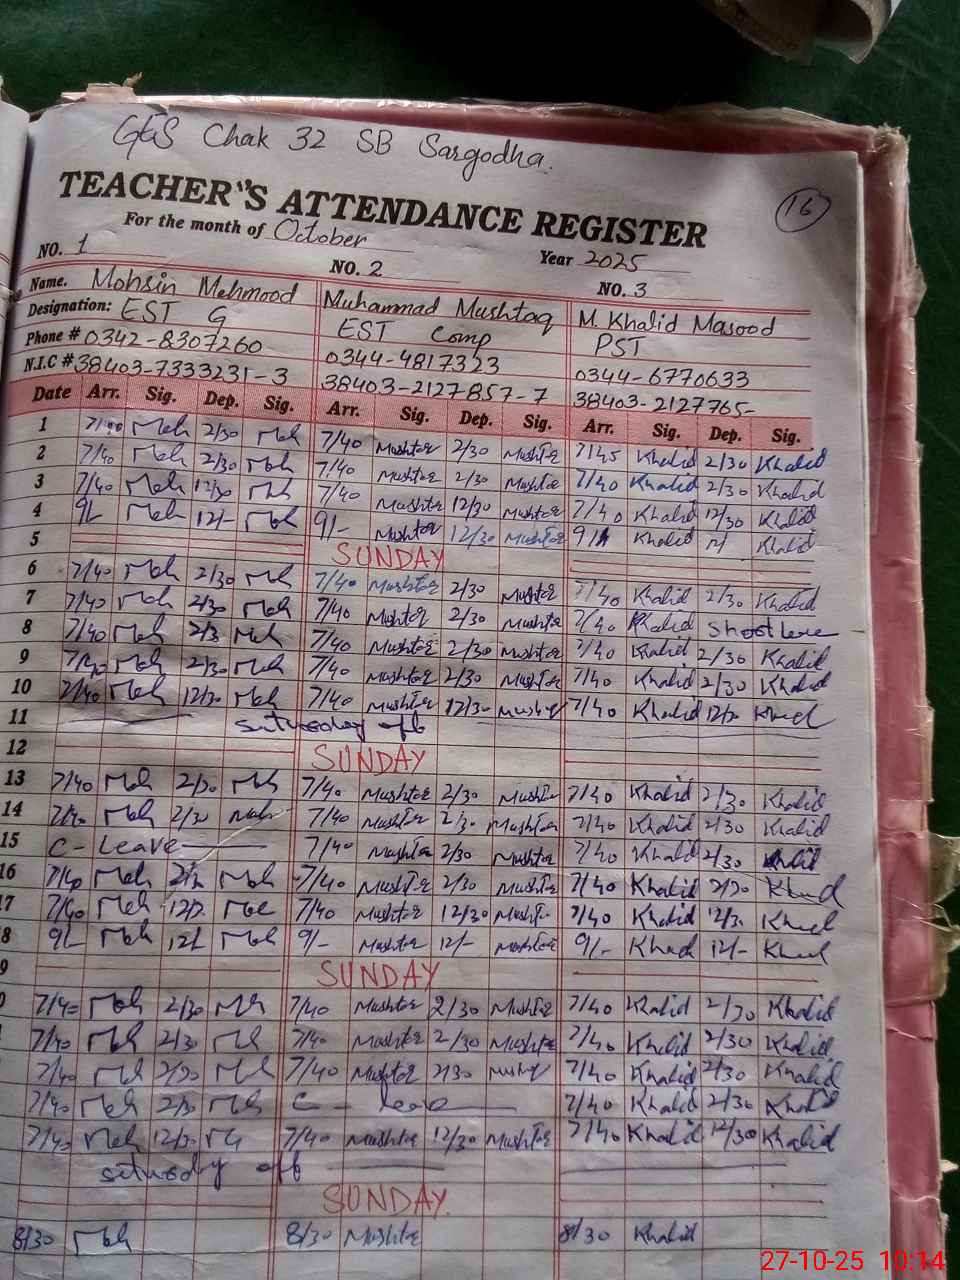 GES Chak 32 SB Sargodha.
TEACHER'S ATTENDANCE REGISTER
16
For the month of October
Year 2025
NO. 1 NO. 2 NO. 3
Name. Mohsin Mehmood Muhammad Mushtaq M. Khalid Masood
Designation: EST G EST Comp PST
Phone # 0342-8307260 0344-4817323 0344-6770633
N.I.C # 38403-7333231-3 38403-2127857-7 38403-2127765-
Date Arr. Sig. Dep. Sig. Arr. Sig. Dep. Sig. Arr. Sig. Dep. Sig.
1 7/40 Meh 2/30 Meh 7/40 Mushtaq 2/30 Mushtaq 7/45 Khalid 2/30 Khalid
2 7/40 Meh 2/30 Meh 7/40 Mushtaq 2/30 Mushtaq 7/40 Khalid 2/30 Khalid
3 7/40 Meh 12/30 Meh 7/40 Mushtaq 12/30 Mushtaq 7/40 Khalid 12/30 Khalid
4 9/- Meh 12/- Meh 9/- Mushtaq 12/30 Mushtaq 9/ Khalid Khalid
5 SUNDAY
6 7/40 Meh 2/30 Meh 7/40 Mushtaq 2/30 Mushtaq 7/40 Khalid 2/30 Khalid
7 7/40 Meh 2/30 Meh 7/40 Mushtaq 2/30 Mushtaq 7/40 Khalid Short leave
8 7/40 Meh 2/30 Meh 7/40 Mushtaq 2/30 Mushtaq 7/40 Khalid 2/30 Khalid
9 7/40 Meh 2/30 Meh 7/40 Mushtaq 2/30 Mushtaq 7/40 Khalid 2/30 Khalid
10 7/40 Meh 12/30 Meh 7/40 Mushtaq 12/30 Mushtaq 7/40 Khalid 12/30 Khalid
11 saturday off
12 SUNDAY
13 7/40 Meh 2/30 Meh 7/40 Mushtaq 2/30 Mushtaq 7/40 Khalid 2/30 Khalid
14 7/40 Meh 2/30 Meh 7/40 Mushtaq 2/30 Mushtaq 7/40 Khalid 2/30 Khalid
15 C - Leave 7/40 Mushtaq 2/30 Mushtaq 7/40 Khalid 2/30 Khalid
16 7/40 Meh 2/30 Meh 7/40 Mushtaq 2/30 Mushtaq 7/40 Khalid 2/30 Khalid
17 7/40 Meh 12/30 Meh 7/40 Mushtaq 12/30 Mushtaq 7/40 Khalid 12/30 Khalid
8 9/- Meh 12/- Meh 9/- Mushtaq 12/- Mushtaq 9/- Khalid 12/- Khalid
9 SUNDAY
0 7/40 Meh 2/30 Meh 7/40 Mushtaq 2/30 Mushtaq 7/40 Khalid 2/30 Khalid
7/40 Meh 2/30 Meh 7/40 Mushtaq 2/30 Mushtaq 7/40 Khalid 2/30 Khalid
7/40 Meh 2/30 Meh 7/40 Mushtaq 2/30 Mushtaq 7/40 Khalid 2/30 Khalid
7/40 Meh 2/30 Meh C - leave 7/40 Khalid 2/30 Khalid
7/40 Meh 12/30 Meh 7/40 Mushtaq 12/30 Mushtaq 7/40 Khalid 12/30 Khalid
saturday off
SUNDAY
8/30 Meh 8/30 Mushtaq 8/30 Khalid
27-10-25 10:14